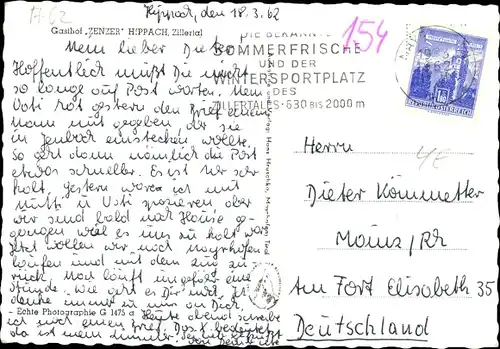 17.62
Hippach, den 18.3.62
Gasthof „ZENZER" HIPPACH, Zillertal
154
SOMMERFRISCHE
UND DER
WINTERSPORTPLATZ
DES
ZILLERTALES · 630 BIS 2000 m
Mein lieber Dieter
Hoffentlich mußt Du nicht
so lange auf Post warten. Mein
Vati hat gestern den Brief einem
Mann mit gegeben der sie
in Jenbach einstecken wollte.
So geht dann nämlich die Post
etwas schneller. Es ist hier sehr
kalt, gestern waren ich mit
Mutti u Vati spazieren aber
wir sind bald nach Hause ge-
gangen weil es uns zu kalt war
Jetzt wollen wir nach Mayrhofen
laufen und mit dem Zug zu-
rück. Man läuft ungefähr eine
Stunde. Wie geht es Dir mir
denke immer an Dich.
Heute abend schreibe
ich noch einen Brief. Das
- Echte Photographie G 1475 a
Herrn
Dieter Kömmetter
Mainz/Rh
Am Fort Elisabeth 35
Deutschland